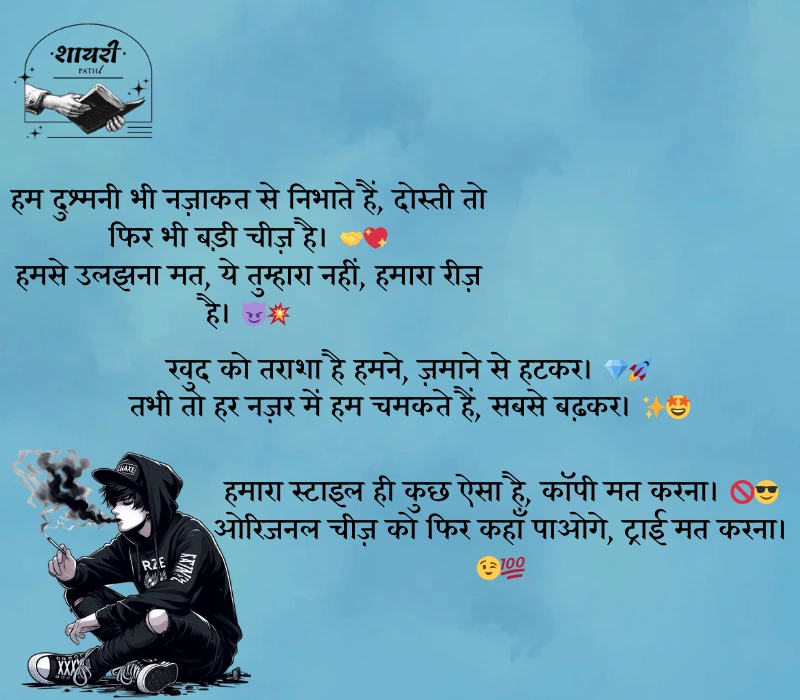 शायरी
PATH
हम दुश्मनी भी नज़ाकत से निभाते हैं, दोस्ती तो
फिर भी बड़ी चीज़ है। 🤝💖
हमसे उलझना मत, ये तुम्हारा नहीं, हमारा रीज़
है। 😈💥
खुद को तराशा है हमने, ज़माने से हटकर। 💎🚀
तभी तो हर नज़र में हम चमकते हैं, सबसे बढ़कर। ✨🤩
हमारा स्टाइल ही कुछ ऐसा है, कॉपी मत करना। 🚫😎
ओरिजनल चीज़ को फिर कहाँ पाओगे, ट्राई मत करना।
😉💯
RZE